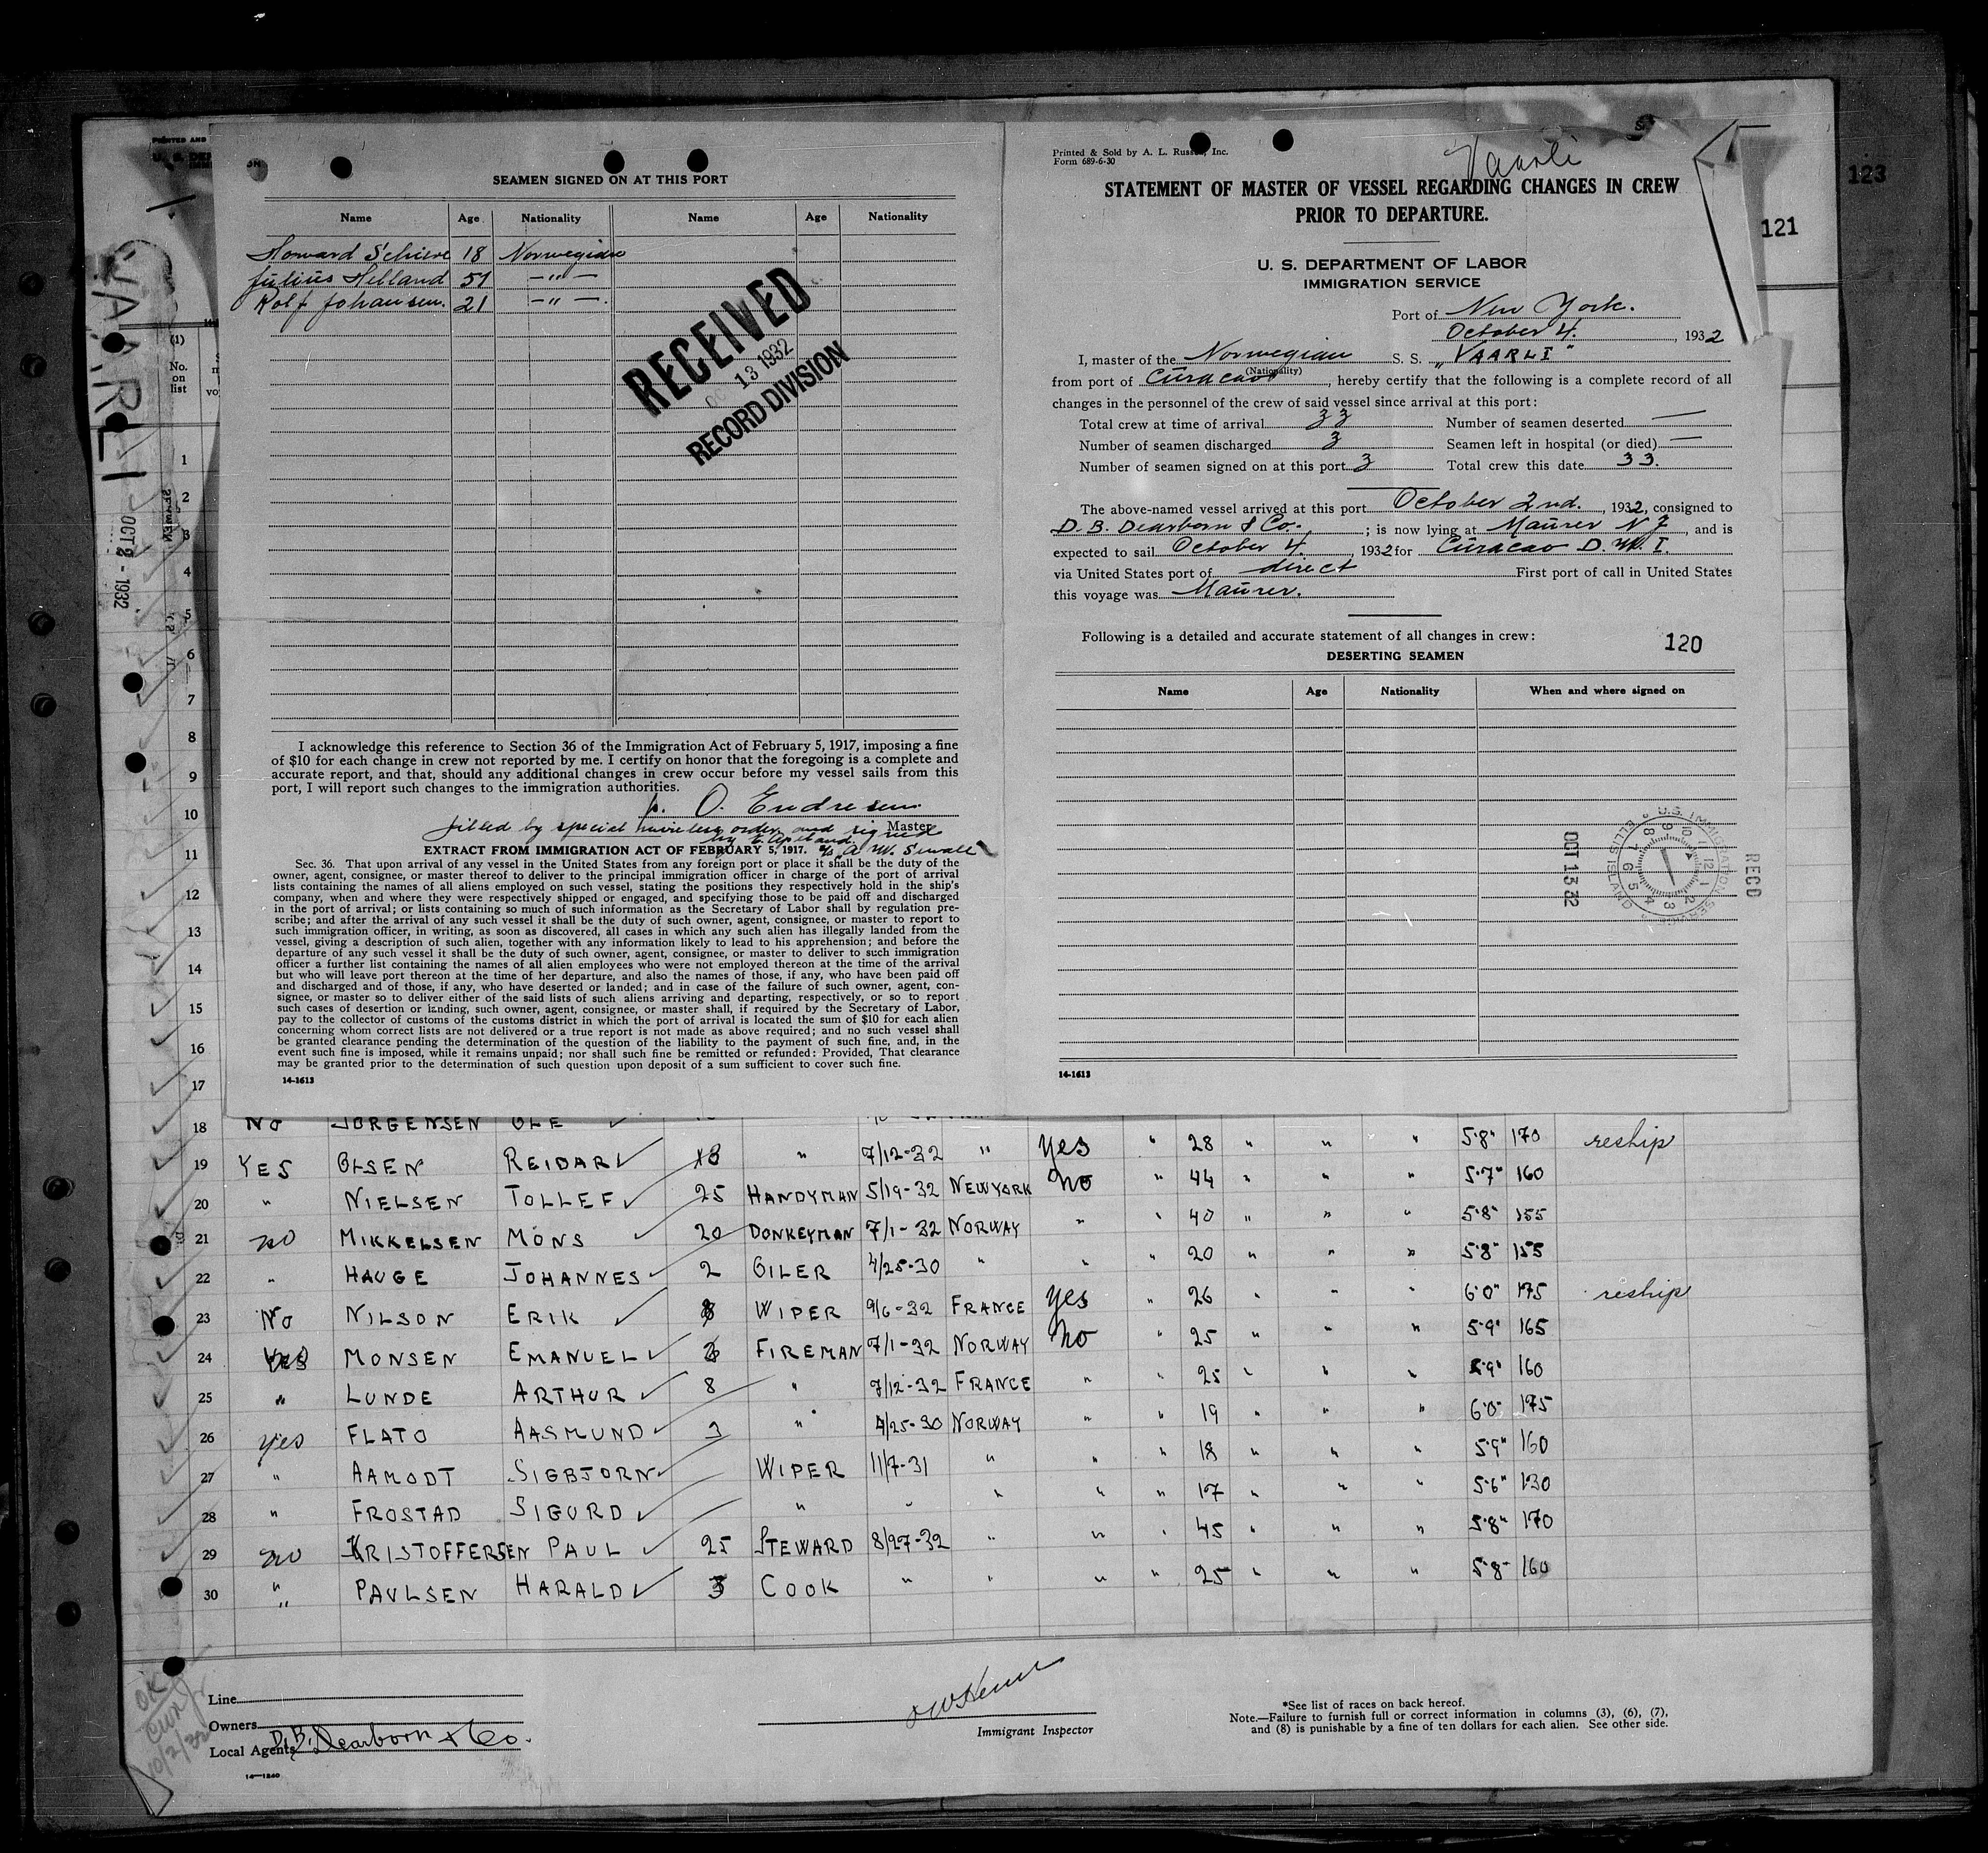 SEAMEN SIGNED ON AT THIS PORT
Name Age Nationality Name Age Nationality
Howard 18 Norwegian
Julius Helland 51 —"—
Rolf Johansen. 21 —"—.
RECEIVED
13 1932
RECORD DIVISION
I acknowledge this reference to Section 36 of the Immigration Act of February 5, 1917, imposing a fine
of $10 for each change in crew not reported by me. I certify on honor that the foregoing is a complete and
accurate report, and that, should any additional changes in crew occur before my vessel sails from this
port, I will report such changes to the immigration authorities.
O. Endresen
Master
filled by special wireless order and signed
EXTRACT FROM IMMIGRATION ACT OF FEBRUARY 5, 1917.
Sec. 36. That upon arrival of any vessel in the United States from any foreign port or place it shall be the duty of the
owner, agent, consignee, or master thereof to deliver to the principal immigration officer in charge of the port of arrival
lists containing the names of all aliens employed on such vessel, stating the positions they respectively hold in the ship's
company, when and where they were respectively shipped or engaged, and specifying those to be paid off and discharged
in the port of arrival; or lists containing so much of such information as the Secretary of Labor shall by regulation pre-
scribe; and after the arrival of any such vessel it shall be the duty of such owner, agent, consignee, or master to report to
such immigration officer, in writing, as soon as discovered, all cases in which any such alien has illegally landed from the
vessel, giving a description of such alien, together with any information likely to lead to his apprehension; and before the
departure of any such vessel it shall be the duty of such owner, agent, consignee, or master to deliver to such immigration
officer a further list containing the names of all alien employees who were not employed thereon at the time of the arrival
but who will leave port thereon at the time of her departure, and also the names of those, if any, who have been paid off
and discharged and of those, if any, who have deserted or landed; and in case of the failure of such owner, agent, con-
signee, or master so to deliver either of the said lists of such aliens arriving and departing, respectively, or so to report
such cases of desertion or landing, such owner, agent, consignee, or master shall, if required by the Secretary of Labor,
pay to the collector of customs of the customs district in which the port of arrival is located the sum of $10 for each alien
concerning whom correct lists are not delivered or a true report is not made as above required; and no such vessel shall
be granted clearance pending the determination of the question of the liability to the payment of such fine, and, in the
event such fine is imposed, while it remains unpaid; nor shall such fine be remitted or refunded: Provided, That clearance
may be granted prior to the determination of such question upon deposit of a sum sufficient to cover such fine.
14-1613
Printed & Sold by A. L. Russell, Inc.
Form 689-6-30
Vaarli
STATEMENT OF MASTER OF VESSEL REGARDING CHANGES IN CREW
PRIOR TO DEPARTURE.
U. S. DEPARTMENT OF LABOR
IMMIGRATION SERVICE
Port of New York.
October 4. , 1932
I, master of the Norwegian S. S. „VAARLI"
(Nationality)
from port of Curacao , hereby certify that the following is a complete record of all
changes in the personnel of the crew of said vessel since arrival at this port:
Total crew at time of arrival 33 Number of seamen deserted —
Number of seamen discharged 3 Seamen left in hospital (or died) —
Number of seamen signed on at this port 3 Total crew this date 33.
The above-named vessel arrived at this port October 2nd. , 1932, consigned to
D. B. Dearborn & Co. ; is now lying at Maurer N J , and is
expected to sail October 4. , 1932 for Curacao D. W. I.
via United States port of direct First port of call in United States
this voyage was Maurer.
Following is a detailed and accurate statement of all changes in crew: 120
DESERTING SEAMEN
Name Age Nationality When and where signed on
U.S. IMMIGRATION SERVICE ELLIS ISLAND
OCT 13 32
RECD
14-1613
121
123
VAARLI
OCT 2 - 1932
(1)
No.
on
list
1
2
3
4
5
6
7
8
9
10
11
12
13
14
15
16
17
18 No JORGENSEN OLE
19 YES OLSEN REIDAR 13 " 7/12-32 " Yes " 28 " " " 5'8" 170 reship
20 " NIELSEN TOLLEF 25 HANDYMAN 5/19-32 NEWYORK No " 44 " " " 5'7" 160
21 no MIKKELSEN MONS 20 DONKEYMAN 7/1-32 NORWAY " " 40 " " " 5'8" 155
22 " HAUGE JOHANNES 2 OILER 4/25-30 " " " 20 " " " 5'8" 155
23 No NILSON ERIK 8 WIPER 9/6-32 FRANCE Yes " 26 " " " 6'0" 175 reship
24 MONSEN EMANUEL FIREMAN 7/1-32 NORWAY No " 25 " " " 5'9" 165
25 " LUNDE ARTHUR 8 " 7/12-32 FRANCE " " 25 " " " 5'9" 160
26 yes FLATO AASMUND 3 " 4/25-30 NORWAY " " 19 " " " 6'0" 175
27 " AAMODT SIGBJORN WIPER 11/7-31 " " " 18 " " " 5'9" 160
28 " FROSTAD SIGURD " " " " " 17 " " " 5'6" 130
29 no KRISTOFFERSEN PAUL 25 STEWARD 8/27-32 " " " 45 " " " 5'8" 170
30 " PAULSEN HARALD 3 COOK " " " " 25 " " " 5'8" 160
OK
10/2/32
Line
Owners
Local Agents D. B. Dearborn & Co.
14—1240
Immigrant Inspector
*See list of races on back hereof.
Note.—Failure to furnish full or correct information in columns (3), (6), (7),
and (8) is punishable by a fine of ten dollars for each alien. See other side.